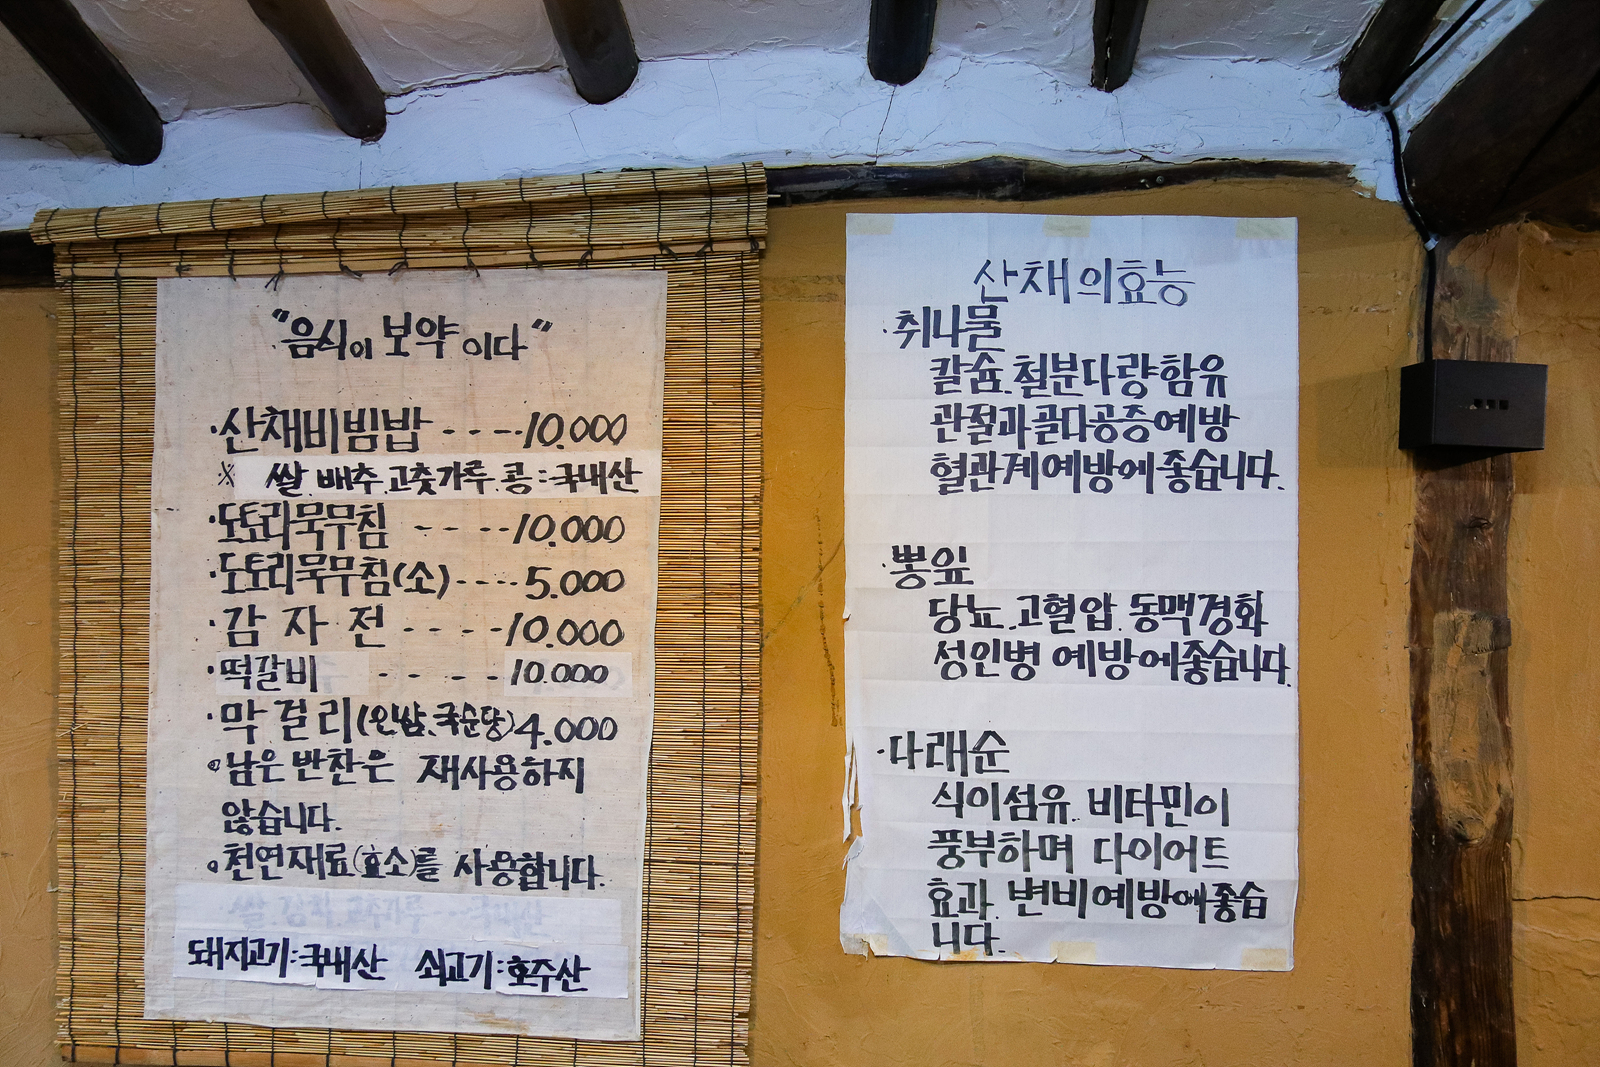 "음식이 보약이다"
·산채비빔밥 ----10.000
※ 쌀. 배추. 고춧가루. 콩:국내산
·도토리묵무침 ----10.000
·도토리묵무침(소)----5.000
·감자전 ----10.000
·떡갈비 ----10.000
·막걸리(인삼.국순당)4.000
◦남은 반찬은 재사용하지
않습니다.
◦천연재료(효소)를 사용합니다.
돼지고기:국내산 쇠고기:호주산
산채의효능
·취나물
칼슘.철분다량함유
관절과골다공증예방
혈관계예방에좋습니다.
·뽕잎
당뇨.고혈압.동맥경화
성인병 예방에좋습니다.
·다래순
식이섬유.비타민이
풍부하며 다이어트
효과. 변비예방에좋습
니다.